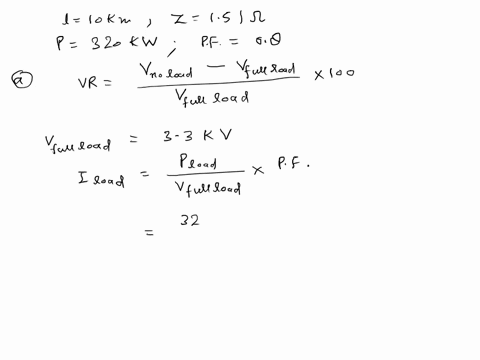 l = 10 Km , Z = 1.51 Ω
P = 320 KW ; P.F. = 0.8
(a) VR = (V no load − V full load) / V full load × 100
V full load = 3.3 KV
I load = P load / V full load × P.F.
= 32